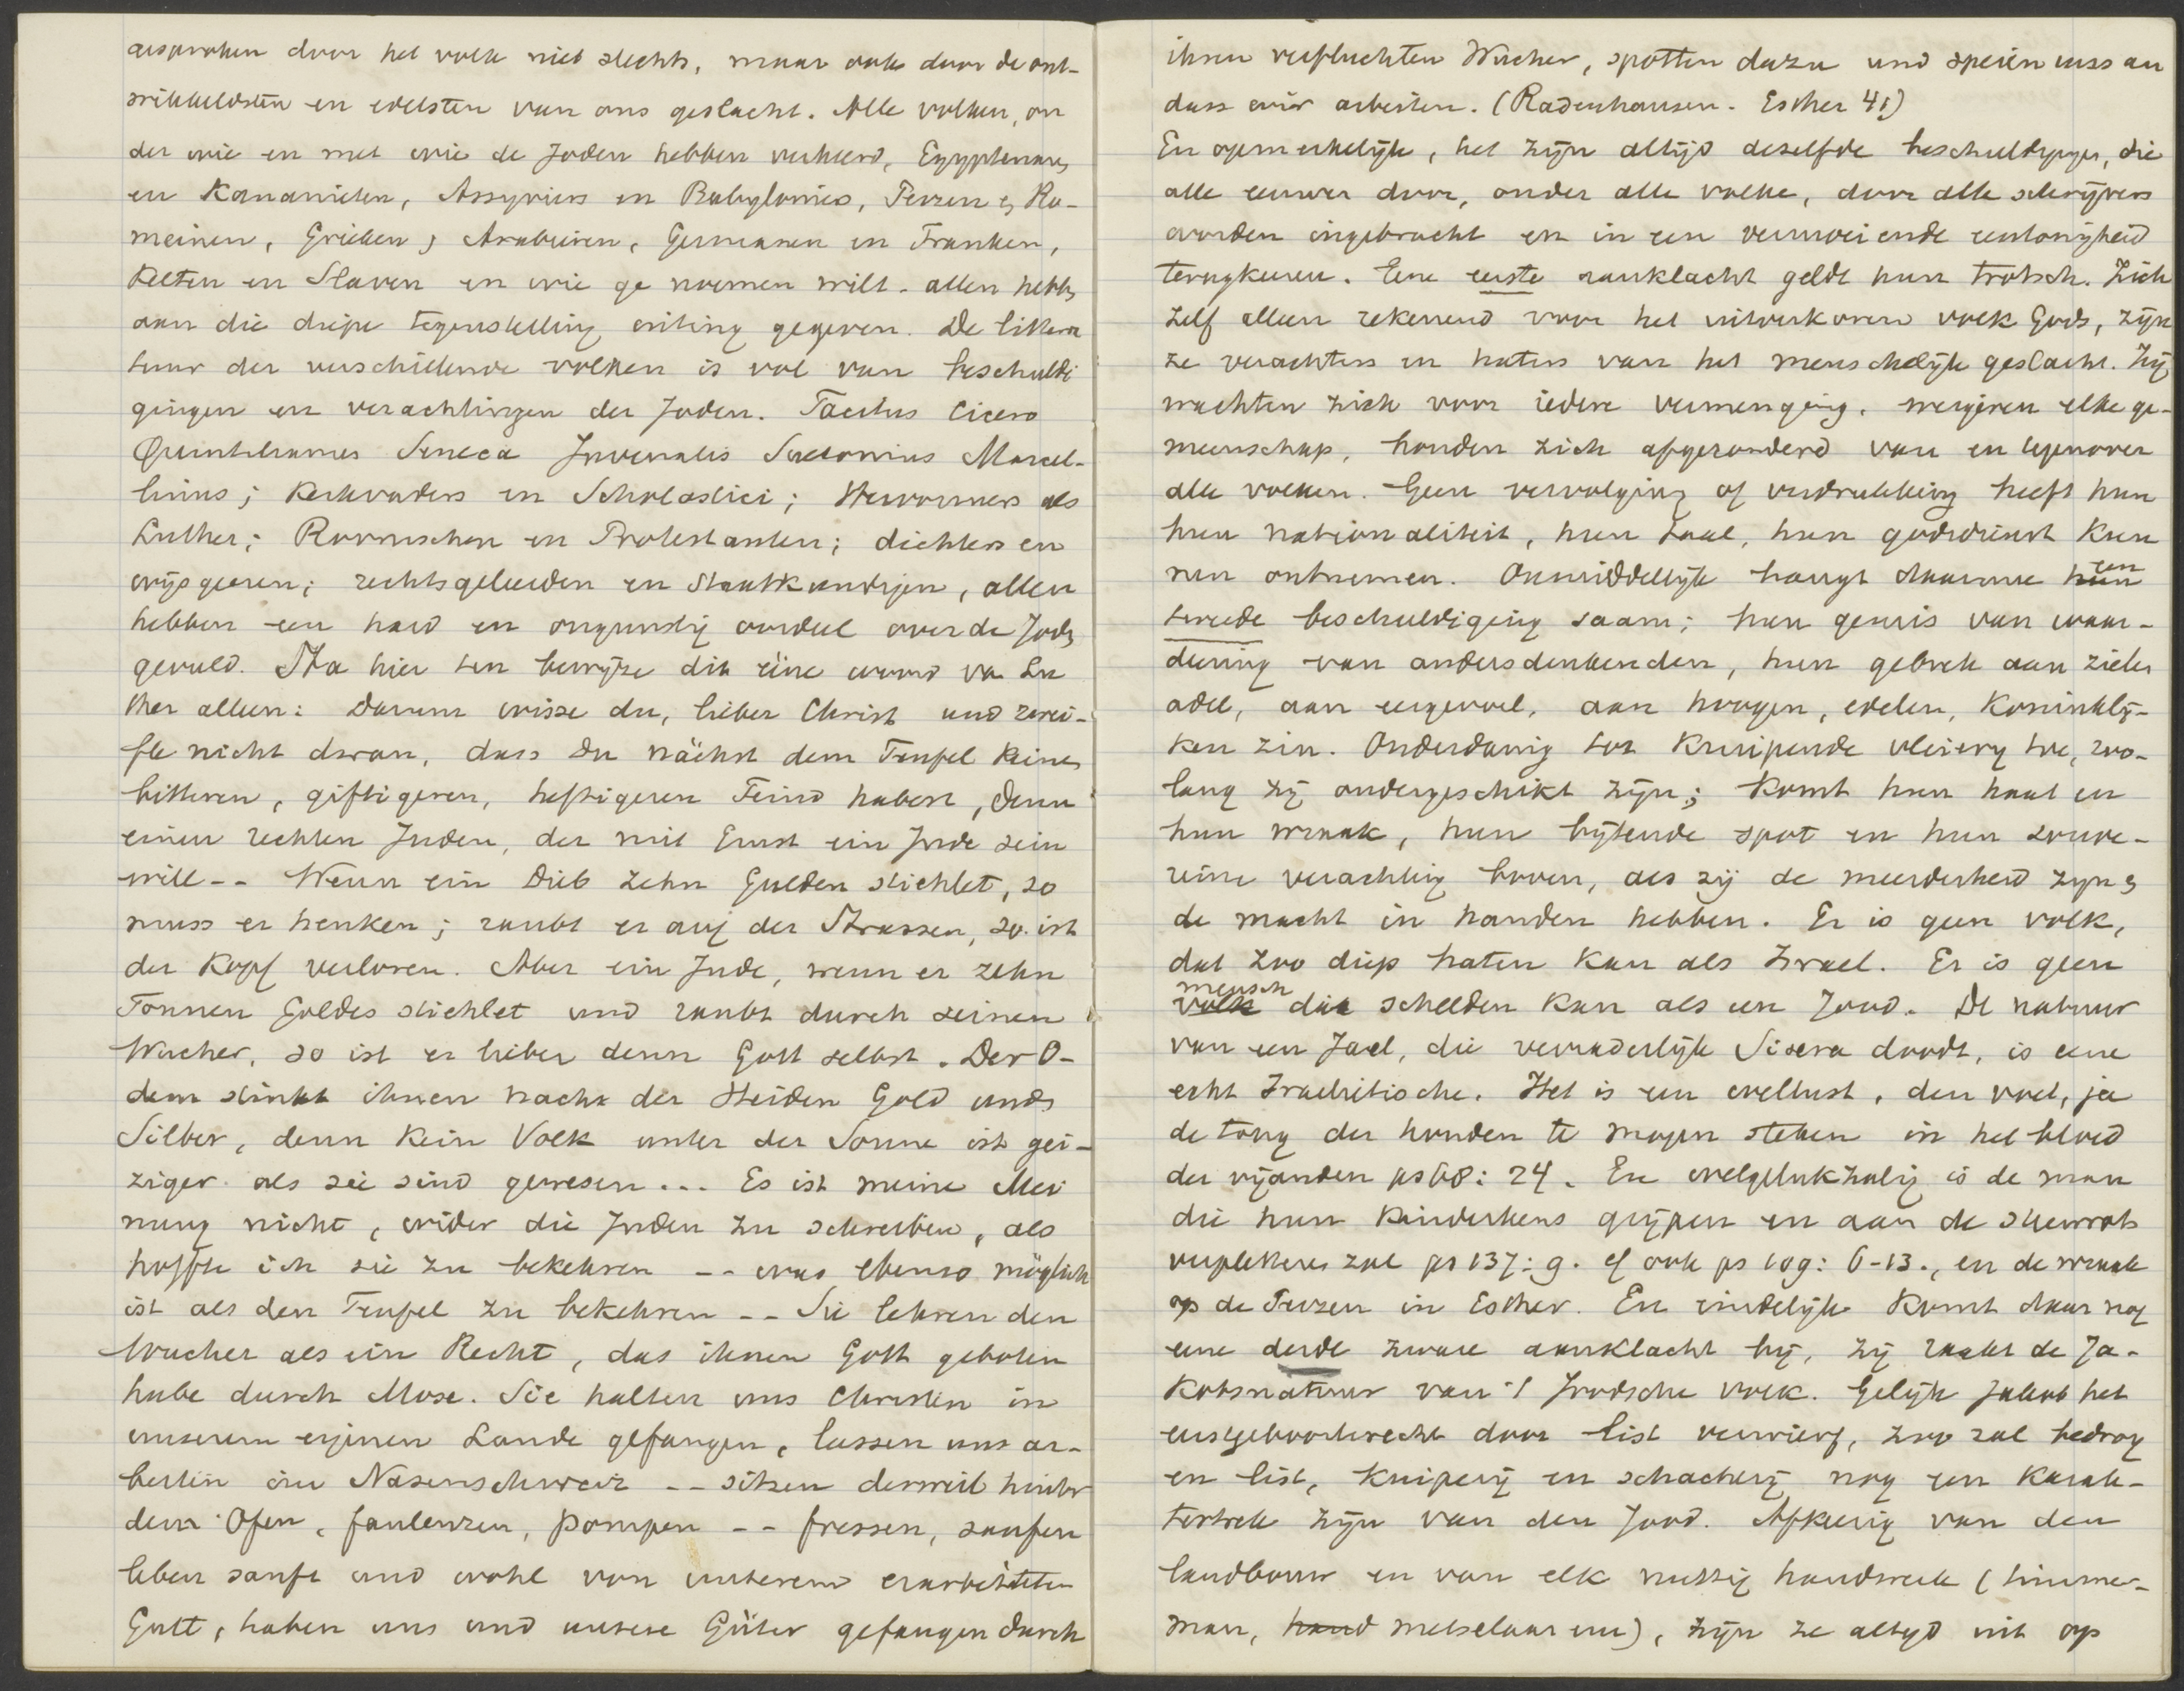 gesproken door het volk niet slechts, maar ook door de ont-
wikkeldsten en edelsten van ons geslacht. Alle volken, on
der wie en met wie de Joden hebben verkeerd, Egyptenaars
en Kananieten, Assyriers en Babyloniers, Perzen en Ro-
meinen, Grieken en Arabieren, Germanen en Franken,
Kelten en Slaven en wie ge noemen wilt - allen hebben
aan die diepe tegenstelling uiting gegeven. De littera
tuur der verschillende volken is vol van beschuldi
gingen en verachtingen der Joden. Tacitus Cicero
Quintilianus Seneca Juvenalis Suetonius Marcel-
linus; Kerkvaders en Scholastici; Hervormers als
Luther; Roomschen en Protestanten; dichters en
wijsgeeren; rechtsgeleerden en Staatkundigen, allen
hebben een hard en ongunstig oordeel over de Joden
geveld. Sta hier ten bewijze dit eene woord van Lu
ther alleen: Darum wisse du, lieber Christ und zwei-
fle nicht daran, dass du nächst dem Teufel keinen
bitteren, giftigeren, heftigeren Feind habest, denn
einen rechten Juden, der mit Ernst ein Jude sein
will -- Wenn ein Dieb zehn Gulden stiehlet, so
muss er henken; raubt er auf der Strassen, so ist
der Kopf verloren. Aber ein Jude, wenn er zehn
Tonnen Goldes stiehlet und raubt durch seinen
Wucher, so ist er lieber denn Gott selbst. Der O-
dem stinkt ihnen nach der Heiden Gold und
Silber, denn Kein Volk unter der Sonne ist gei-
ziger als sie sind gewesen ... Es ist meine Mei
nung nicht, wider die Juden zu schreiben, als
hoffte ich sie zu bekehren -- was ebenso möglich
ist als den Teufel zu bekehren -- Sie lehren den
Wucher als ein Recht, das ihnen Gott geboten
habe durch Mose. Sie halten uns Christen in
unserem eigenen Lande gefangen, lassen uns ar-
beiten im Nasenschweiz -- sitzen derweil hinter
dem Ofen, faulenzen, pompen -- fressen, saufen
leben sanft und wohl von unserem erarbeiteten
Gutt, haben uns und unsere Güter gefangen durch
ihren verfluchten Wucher, spotten dazu und speien uns an
dass wir arbeiten. (Radenhausen - Esther 41)
En opmerkelijk, het zijn altijd dezelfde beschuldigingen, die
alle eeuwen door, onder alle volke, door alle schrijvers
worden ingebracht en in een vermoeiende eentonigheid
terugkeeren. Eene eerste aanklacht geldt hun trotsch. Zich
zelf alleen rekenend voor het uitverkoren volk Gods, zijn
ze verachters en haters van het menschelijk geslacht. Zij
wachten zich voor iedere vermenging, weigeren elke ge-
meenschap, houden zich afgezonderd van en tegenover
alle volken. Geen vervolging of verdrukking heeft hun
hun nationaliteit, hun taal, hun godsdienst kun
nen ontnemen. Onmiddellijk hangt daarmee hun een
tweede beschuldiging saam; hun gemis van waar-
deering van andersdenkenden, hun gebrek aan ziele
adel, aan eergevoel, aan hoogen, edelen, Koninklij-
ken zin. Onderdanig tot kruipende vleierij toe, zoo-
lang zij ondergeschikt zijn; komt hun haat en
hun wraak, hun bijtende spot en hun souve-
reine verachting boven, als zij de meerderheid zijn en
de macht in handen hebben. Er is geen volk,
dat zoo diep haten kan als Israel. Er is geen
volk mensch die schelden kan als een Jood. De natuur
van een Jael, die verraderlijk Sisera doodt, is eene
echt Israelitische. Het is een wellust, den voet, ja
de tong der honden te mogen steken in het bloed
der vijanden ps 68: 24. En welgelukzalig is de man
die hun kinderkens grijpen en aan de steenrots
verpletteren zal ps 137: 9. cf ook ps 109: 6-13., en de wraak
op de Perzen in Esther. En eindelijk komt daar nog
eene derde zware aanklacht bij, zij raakt de Ja-
kobsnatuur van 't Joodsche volk. Gelijk Jakob het
eerstgeboorterecht door list verwierf, zoo zal bedrog
en list, kniperij en schacherij nog een karak-
tertrek zijn van den Jood. Afkeerig van den
landbouw en van elk nuttig handwerk (timmer-
man, hand metselaar enz), zijn ze altijd uit op